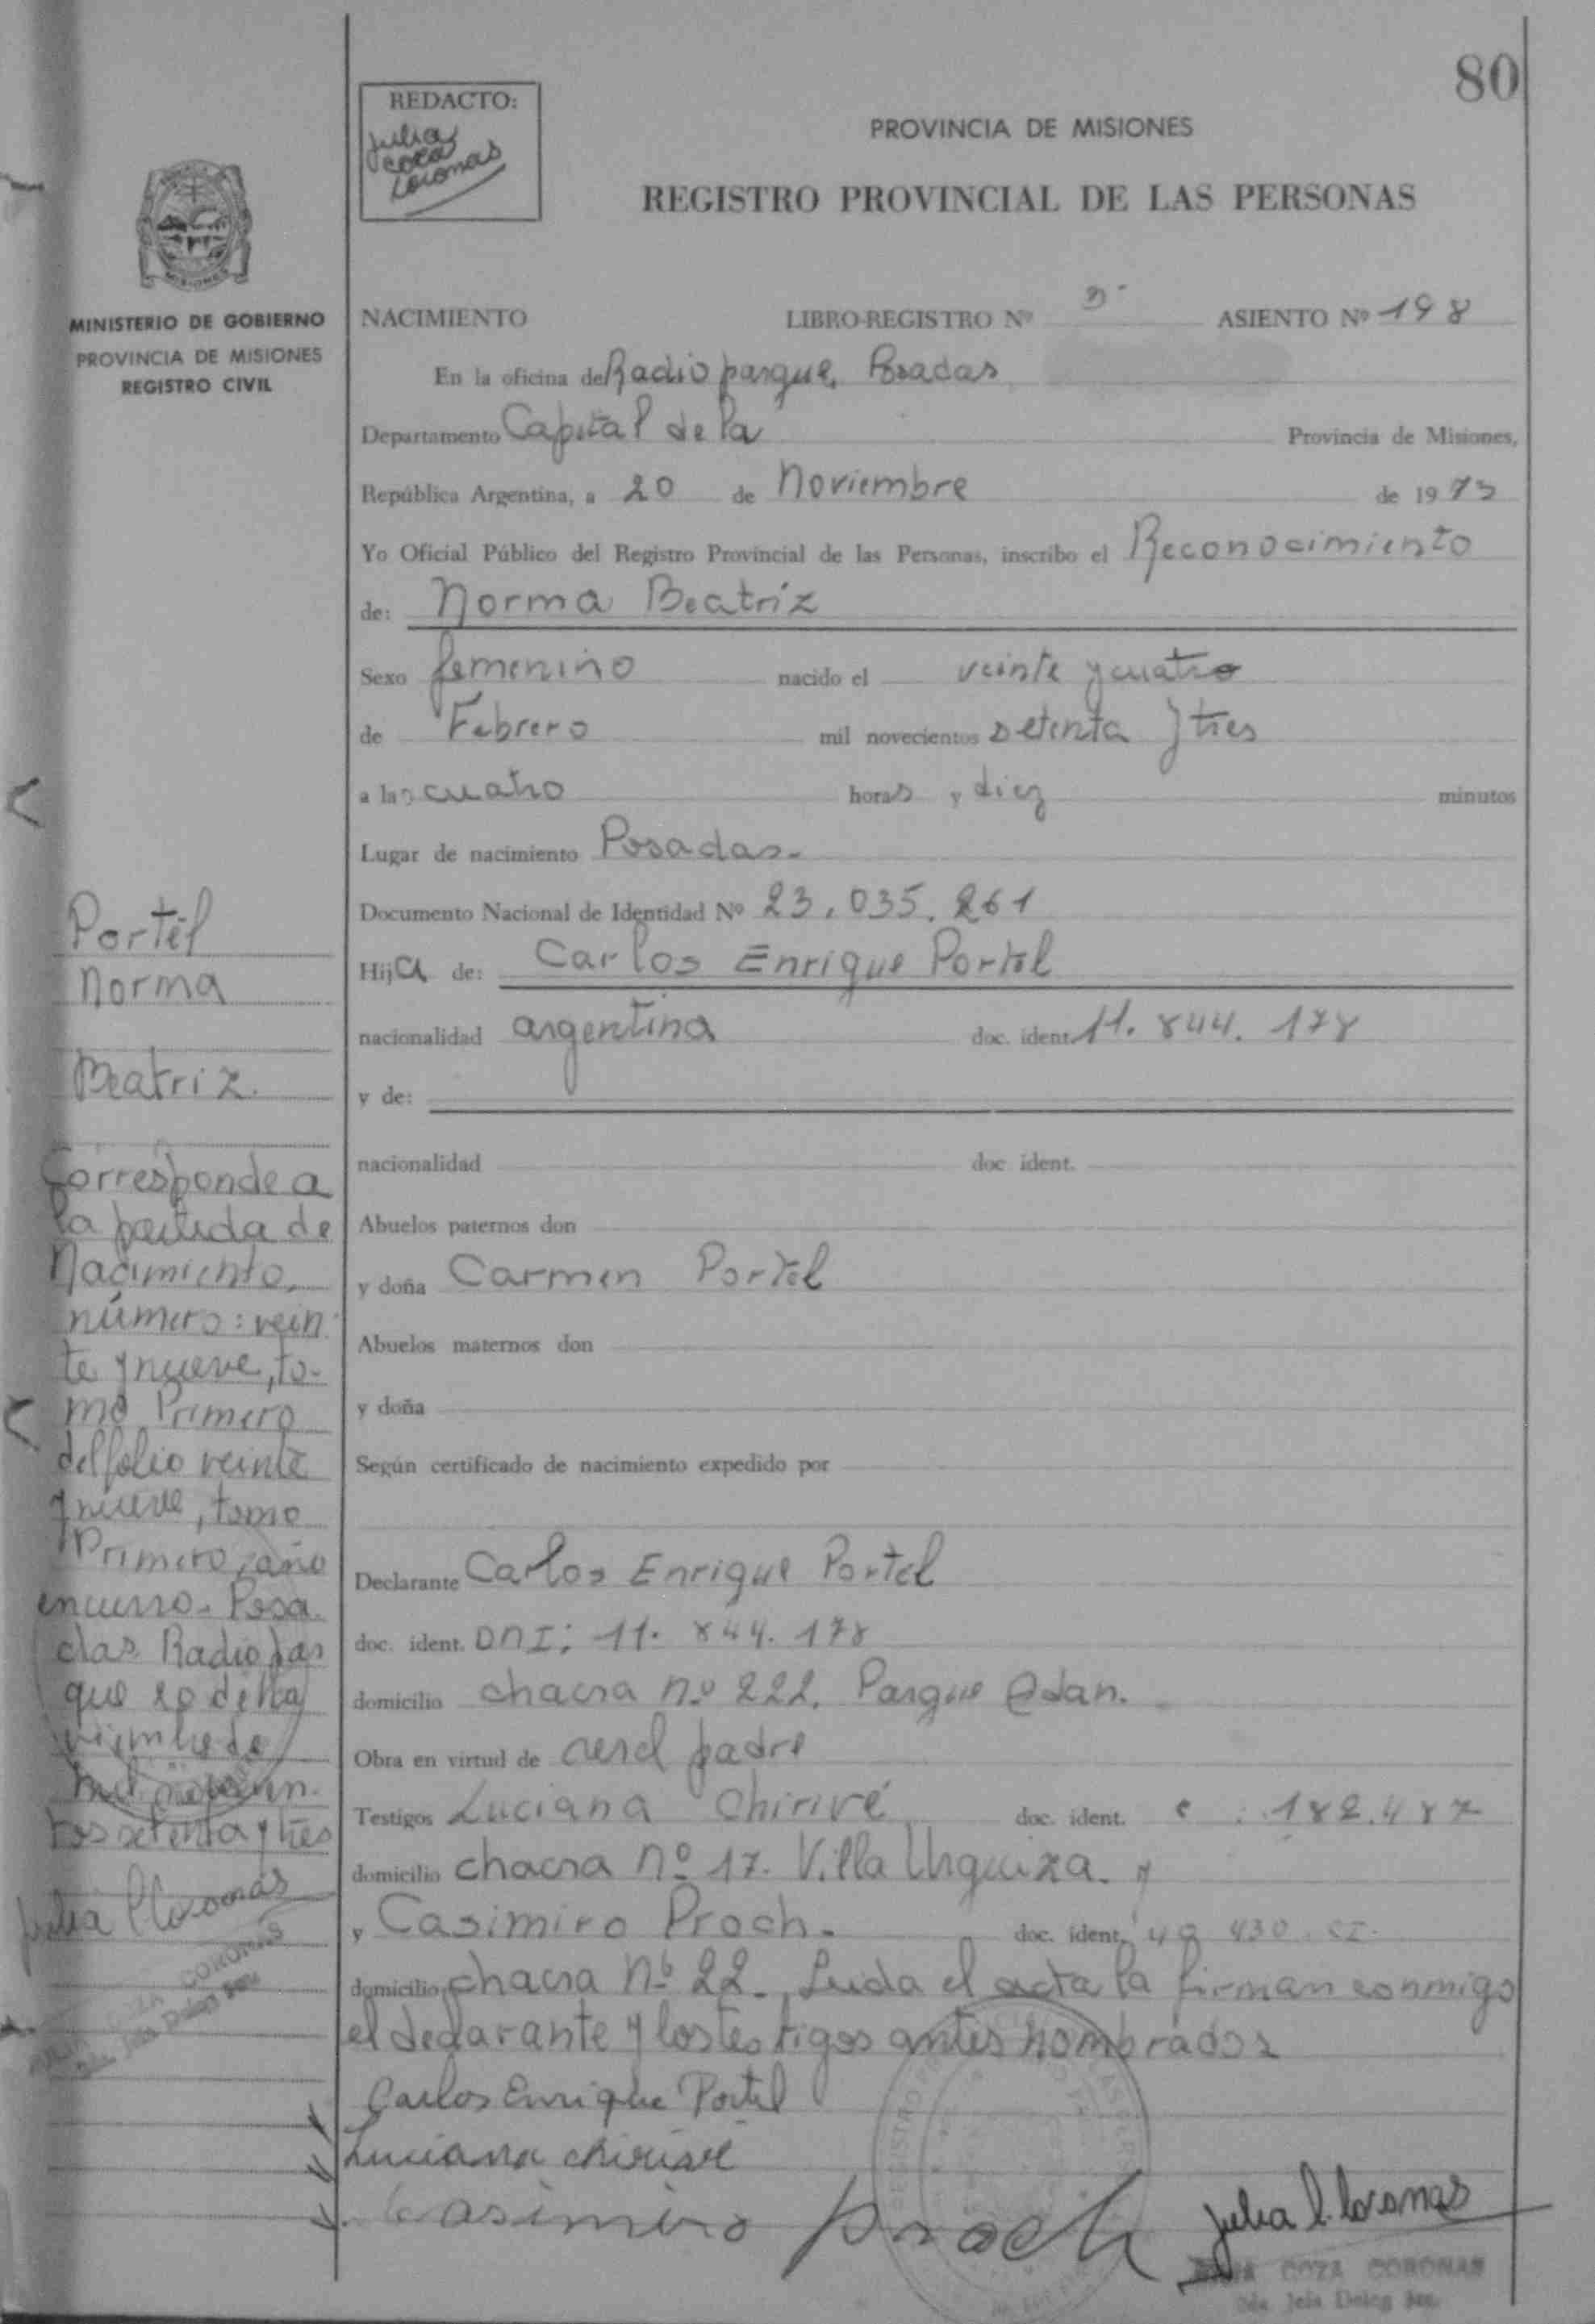 80
REDACTO:
Julia
Coza
Coronas
PROVINCIA DE MISIONES
REGISTRO PROVINCIAL DE LAS PERSONAS
MISIONES
MINISTERIO DE GOBIERNO
PROVINCIA DE MISIONES
REGISTRO CIVIL
NACIMIENTO LIBRO-REGISTRO Nº ASIENTO Nº 198
En la oficina de Radio parque, Posadas
Departamento Capital de la Provincia de Misiones,
República Argentina, a 20 de Noviembre de 1973
Yo Oficial Público del Registro Provincial de las Personas, inscribo el Reconocimiento
de: Norma Beatriz
Sexo femenino nacido el veinte y cuatro
de Febrero mil novecientos setenta y tres
a las cuatro horas y diez minutos
Lugar de nacimiento Posadas.
Documento Nacional de Identidad Nº 23.035.261
Hija de: Carlos Enrique Portel
nacionalidad argentina doc. ident. 11.844.178
y de:
nacionalidad doc ident.
Abuelos paternos don
y doña Carmen Portel
Abuelos maternos don
y doña
Según certificado de nacimiento expedido por
Declarante Carlos Enrique Portel
doc. ident. DNI: 11.844.178
domicilio chacra nº 222. Parque Adan.
Obra en virtud de ser el padre
Testigos Luciana Chirivé doc. ident. 182.487
domicilio chacra nº 17. Villa Urquiza. y
y Casimiro Proch. doc. ident. 49 430. CI.
domicilio chacra Nº 22. Leida el acta la firman conmigo
el declarante y los testigos antes nombrados
Carlos Enrique Portel
Luciana chirivé
Casimiro Proch
Julia C. Coronas
JULIA COZA CORONAS
Portel
Norma
Beatriz.
Corresponde a
la partida de
Nacimiento,
número: vein
te y nueve, to-
mo Primero
del folio veinte
y nueve, tomo
Primero, año
en curso. Posa
das Radio par
que 20 de No
viembre de
mil novecien
tos setenta y tres
Julia C Coronas
COZA CORONAS